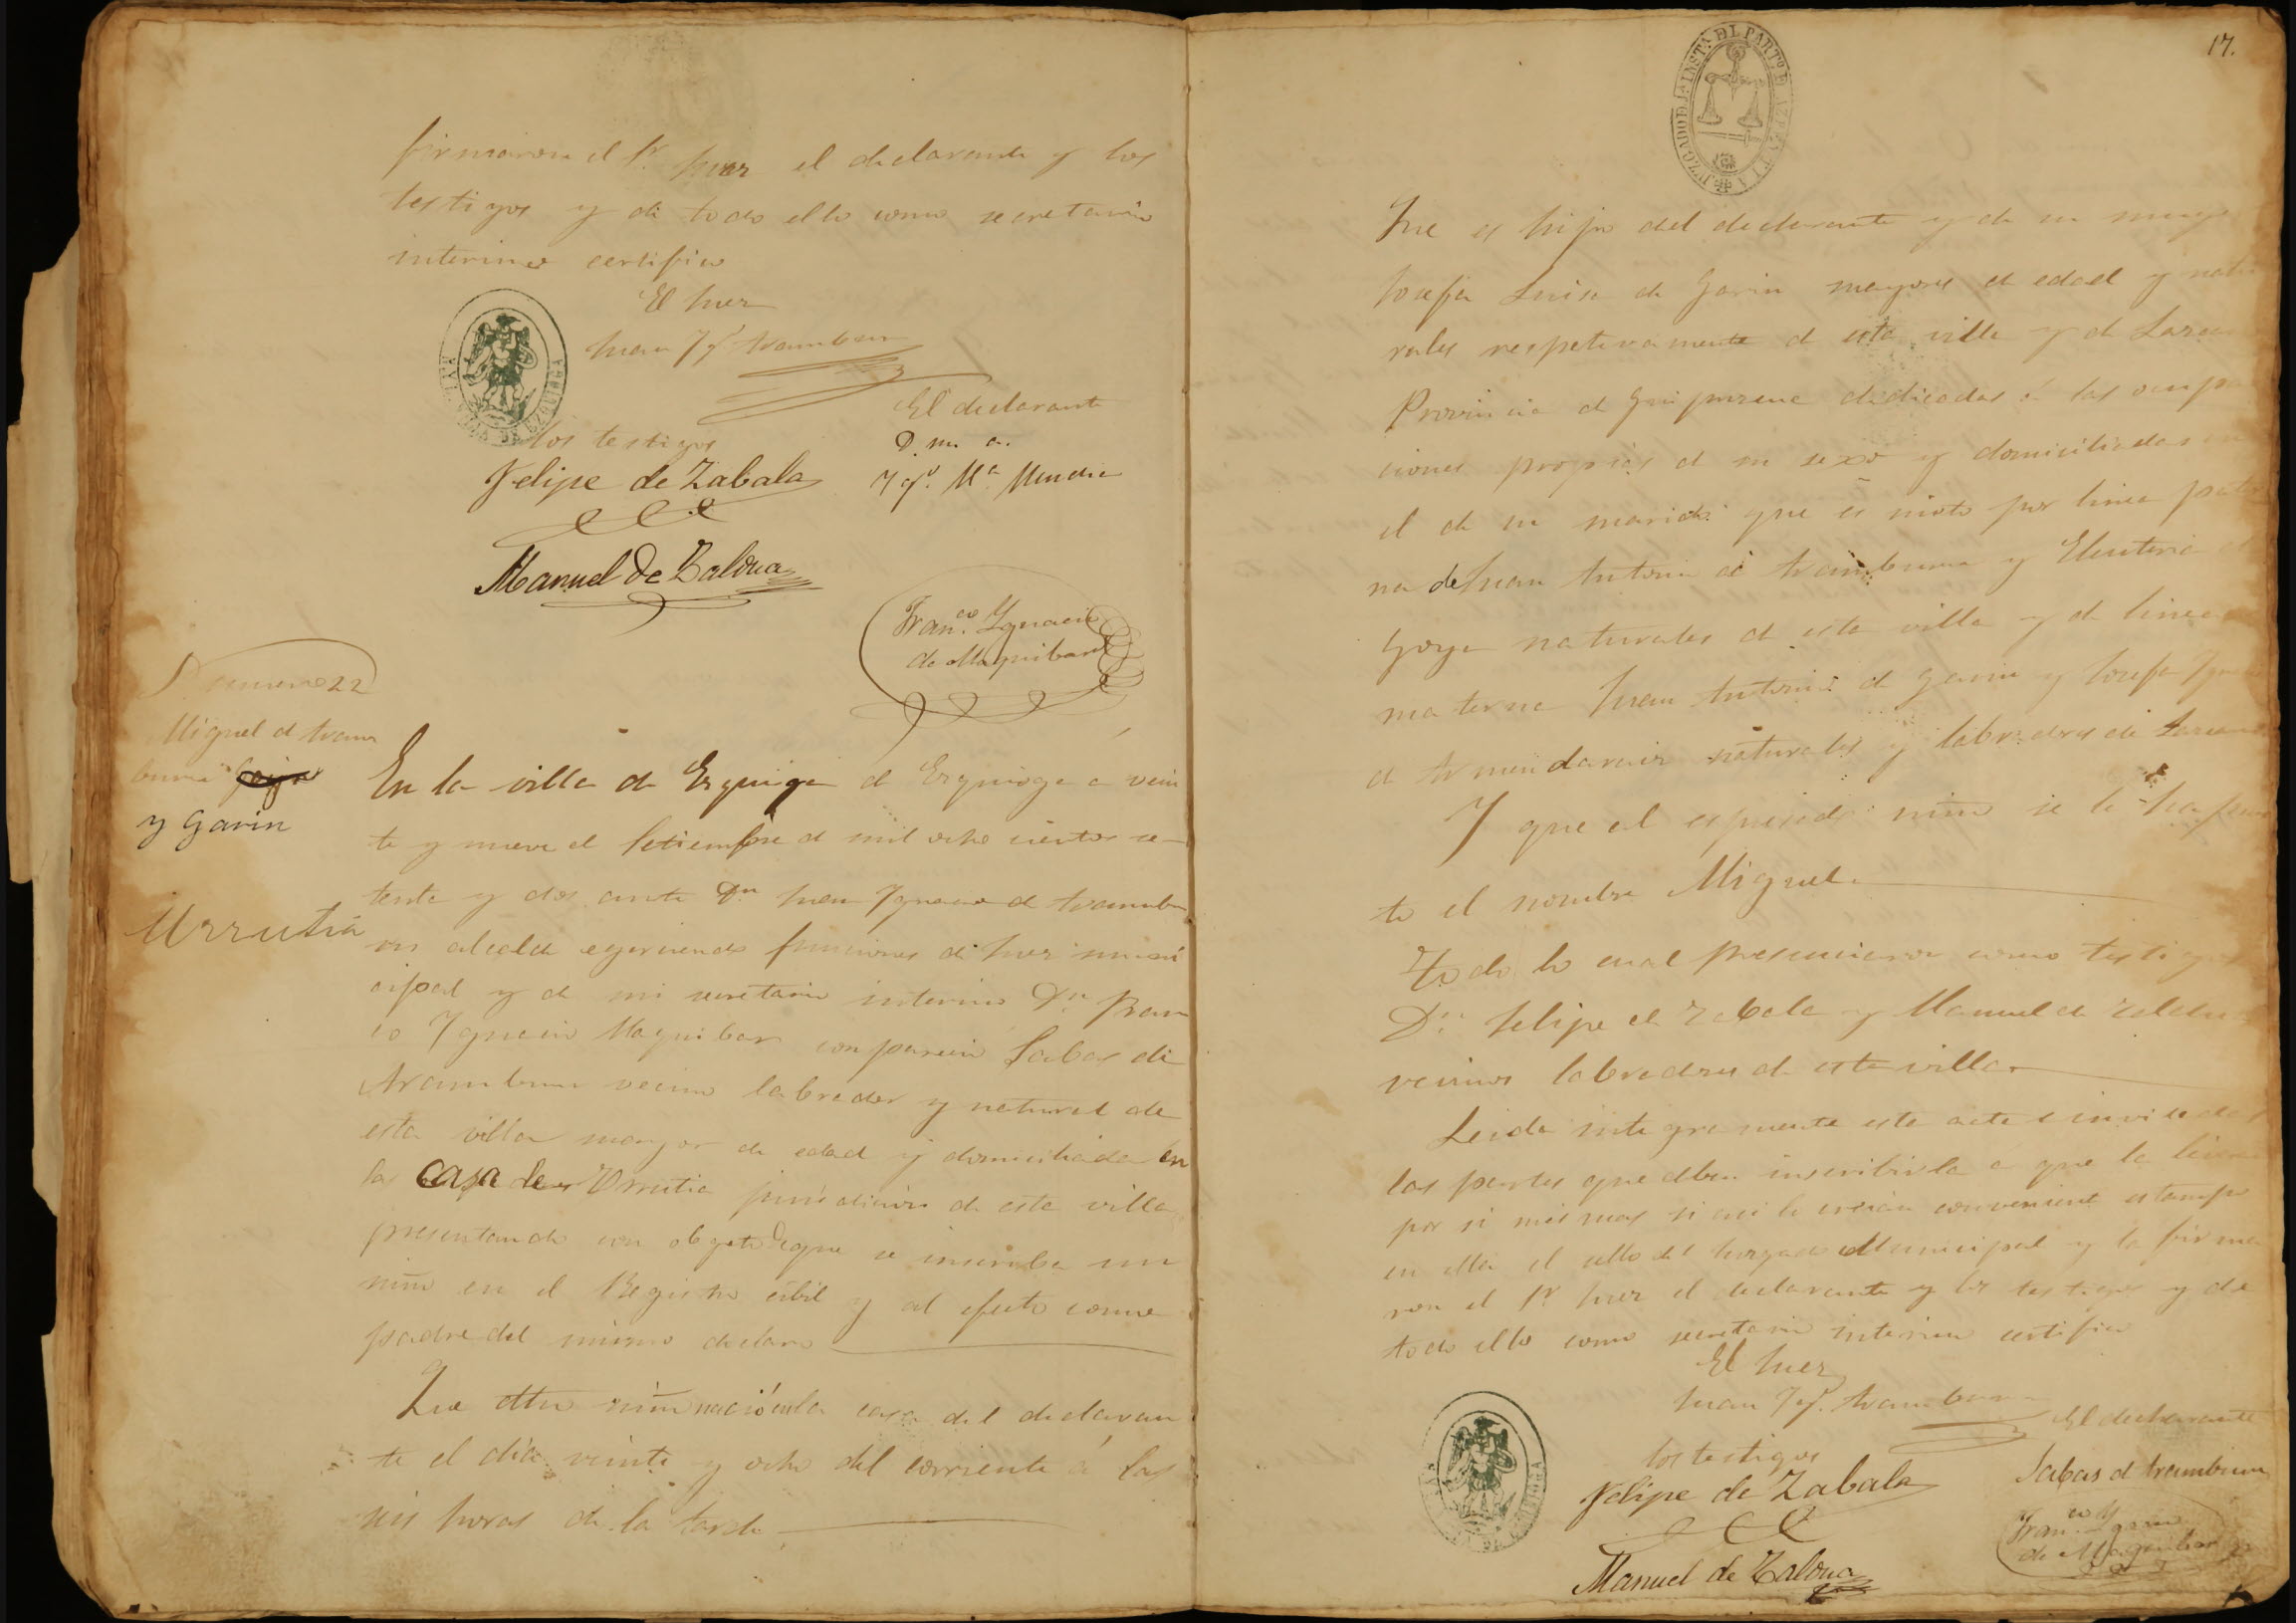 firmaron el Sr. Juez el declarante y los
testigos y de todo ello como secretario
interino certifico
El Juez
Juan Ygo. Aramburu
El declarante
los testigos
Felipe de Zabala
Ygo. Ma. Mendia
Manuel de Zaldua
Franco. Ygnacio
de Maquibar
Numero 22
Miguel d Aram
buru
y Garin
Urrutia
En la villa de Ezquioga d Ezquioga a vein
te y nueve de Setiembre d mil ocho cientos se-
tenta y dos ante Dn Juan Ygnacio d Aramburu
alcalde egerciendo funciones de Juez muni
cipal y de mi secretario interino Dn Fran
co Ygnacio Maquibar comparecio Sabas de
Aramburu vecino labrador y natural de
esta villa mayor de edad y domiciliado en
la casa de Urrutia jurisdicion de esta villa
presentando con objeto de que se inscriba un
niño en el Registro cibil y al efecto como
padre del mismo declaro
Que dho niño nació en la casa del declaran
te el día veinte y ocho del corriente á las
seis horas de la tarde
17.
JUZGADO DE 1a. INSTA. DEL PARTo. DE AZPEITIA
Que es hijo del declarante y de su muger
Josefa Luisa de Garin mayores de edad y natu
rales respetivamente d esta villa y de
Provincia d Guipuzcua dedicadas á las ocupa
ciones propias d su sexo y domiciliadas en
el de su marido que es nieto por linea pater
na de Juan Antonio de Aramburu y Eleuteria de
Goya naturales d esta villa y de linea
materna Juan Antonio d Garin y Josefa Ygnacia
d Armendariz naturales y labradores de
Y que el espresado niño se le ha pues
to el nombre Miguel.
Todo lo cual presenciaron como testigos
Dn. Felipe de Zabala y Manuel de Zaldua
vecinos labradores d esta villa.
Leida integramente esta acta é invitadas
las partes que deben inscribirla a que la leieran
por si mismas si asi lo creian conveniente estampo
en ella el sello del Juzgado Municipal y la firma
ron el Sr. Juez el declarante y los testigos y de
todo ello como secretario interino certifico
El Juez
Juan Ygo. Aramburu
El declarante
los testigos
Sabas d Aramburu
Felipe de Zabala
Franco. Ygnacio
de Maquibar
Manuel de Zaldua